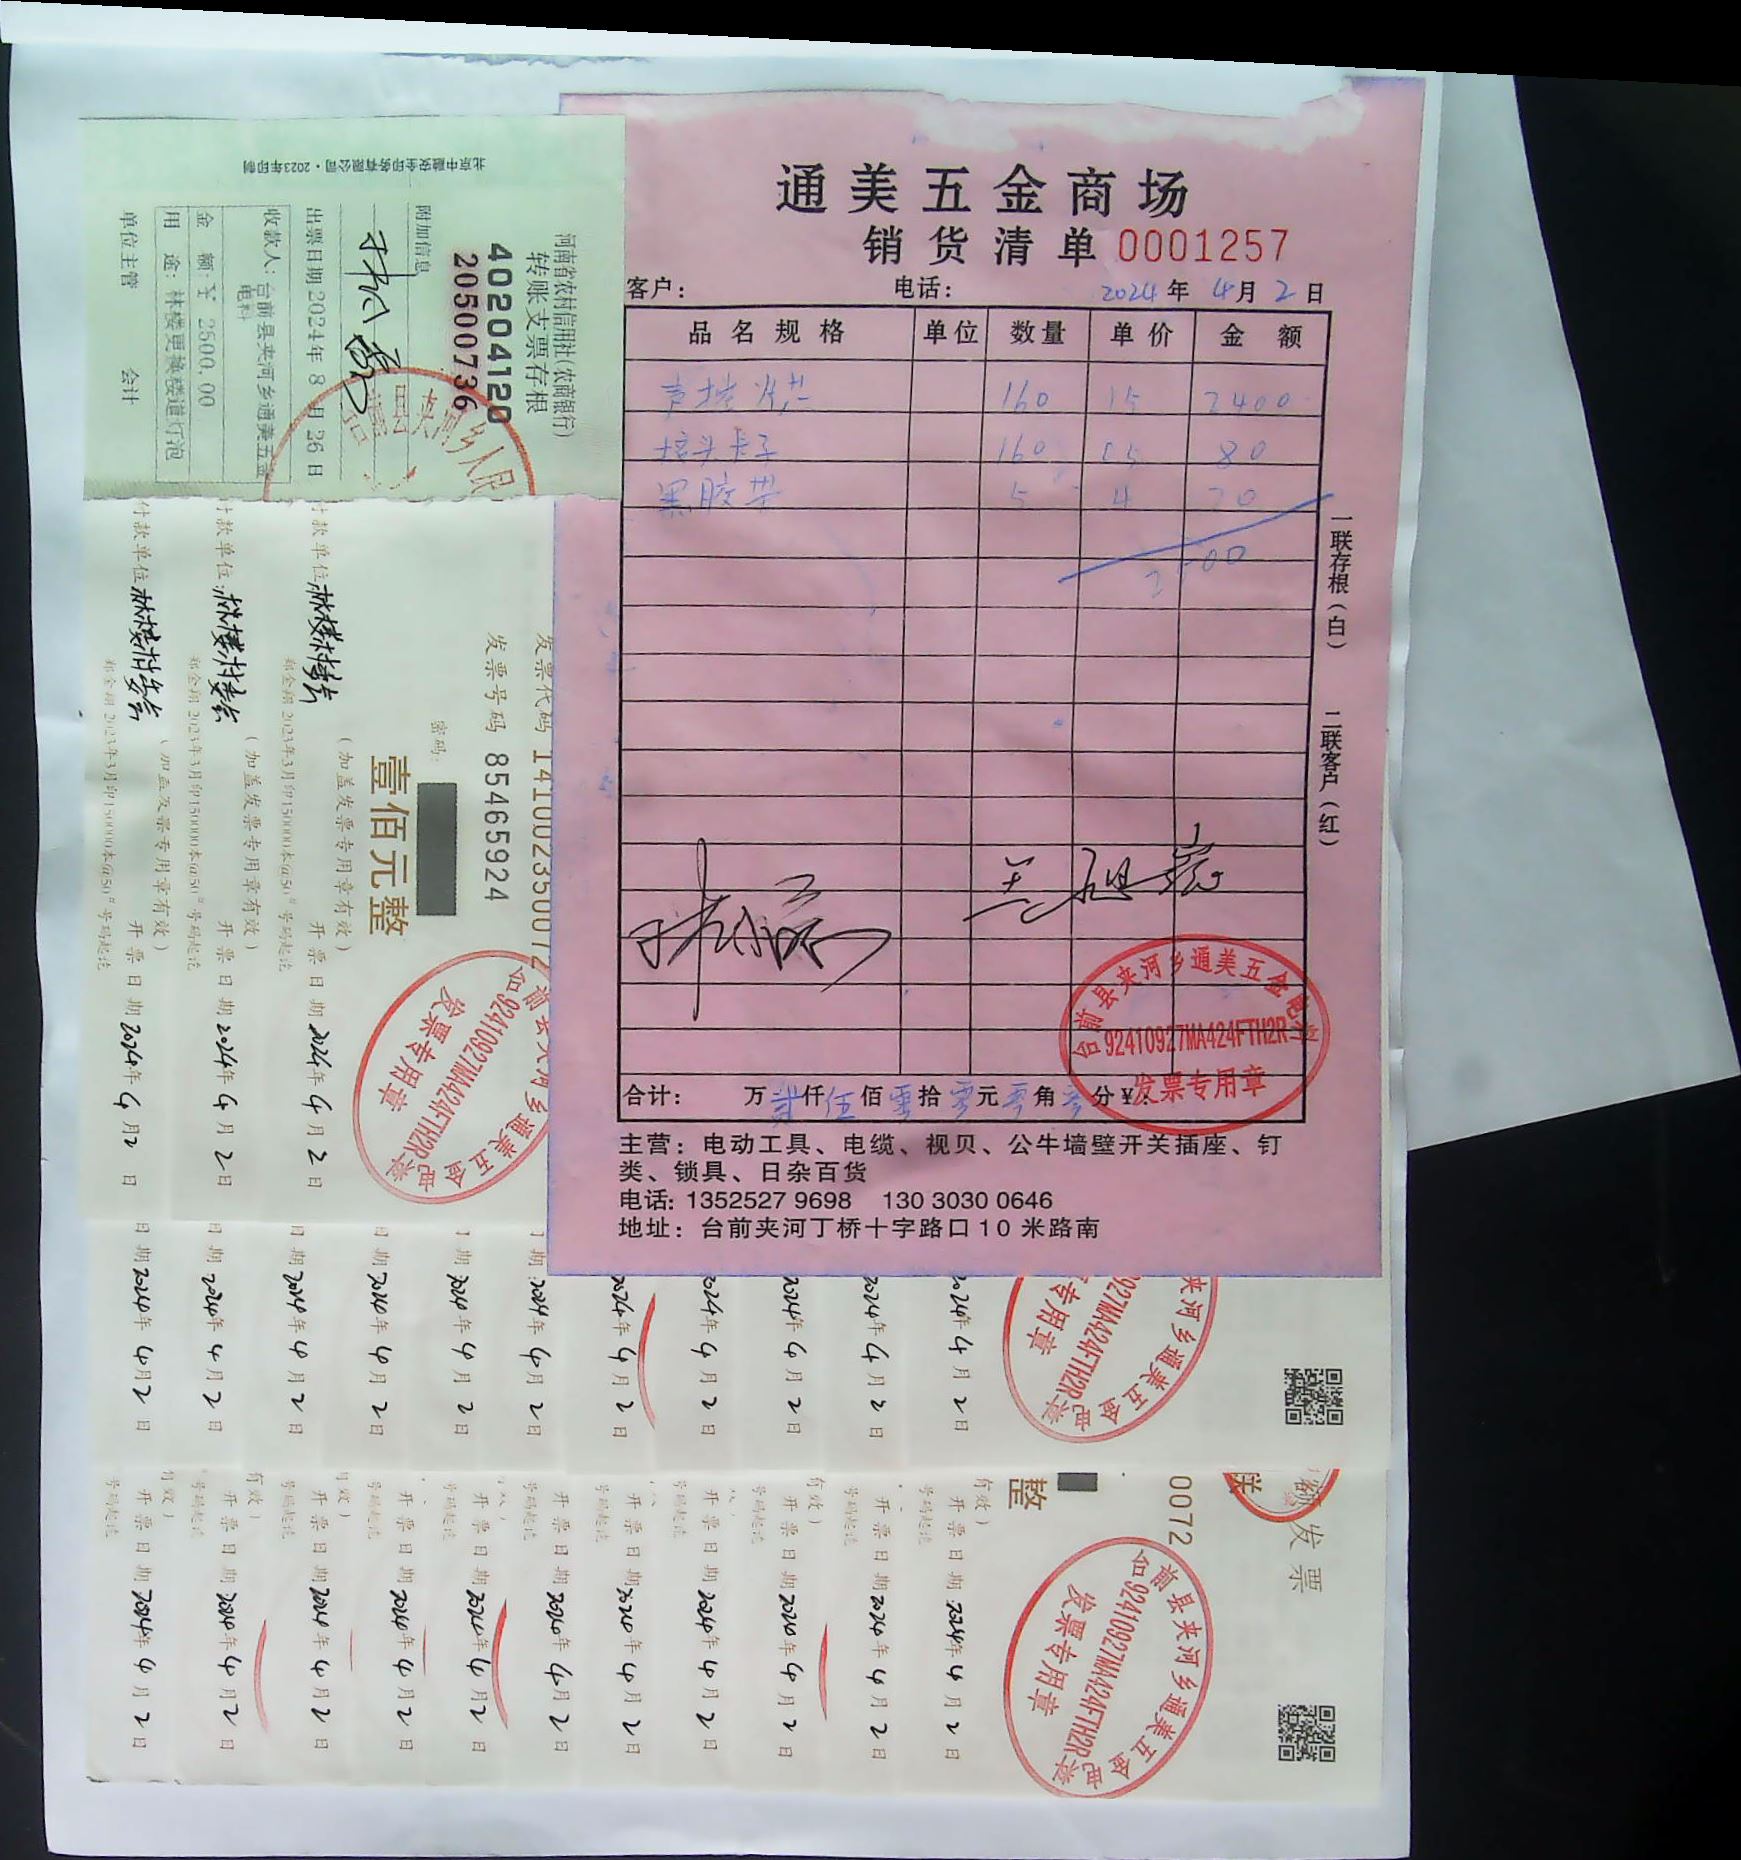 通美五金商场
销货清单 0001257
客户： 电话： 2024年 4月 2日
品名规格 单位 数量 单价 金额
声控灯 160 15 2400
接头卡子 160 0.5 80
黑胶带 5 4 20
2500
一联存根（白） 二联客户（红）
合计： 万贰仟伍佰零拾零元零角零分￥：
台前县夹河乡通美五金电料
92410927MA424FTH2R
发票专用章
主营：电动工具、电缆、视贝、公牛墙壁开关插座、钉
类、锁具、日杂百货
电话: 1352527 9698 130 3030 0646
地址：台前夹河丁桥十字路口10米路南
北京中融安全印务有限公司·2023年印制
河南省农村信用社(农商银行)
转账支票存根
40204120
20500736
附加信息
出票日期2024年 8月 26日
收款人：台前县夹河乡通美五金
电料
金 额：￥ 2500.00
用 途：林楼更换楼道灯泡
单位主管 会计
发票代码 141002350072
发票号码 85465924
密码：
壹佰元整
付款单位：林楼村委会 （加盖发票专用章有效） 开票日期 2024年 4月 2日
付款单位：林楼村委会 （加盖发票专用章有效） 开票日期 2024年 4月 2日
付款单位：林楼村委会 （加盖发票专用章有效） 开票日期 2024年 4月 2日
92410927MA424FTH2R
发票专用章
日期 2024年 4月 2日
日期 2024年 4月 2日
日期 2024年 4月 2日
日期 2024年 4月 2日
日期 2024年 4月 2日
日期 2024年 4月 2日
2024年 4月 2日
2024年 4月 2日
2024年 4月 2日
2024年 4月 2日
2024年 4月 2日
夹河乡通美五金电料
927MA424FTH2R
专用章
0072
发票
整
开票日期 2024年 4月 2日
开票日期 2024年 4月 2日
开票日期 2024年 4月 2日
开票日期 2024年 4月 2日
开票日期 2024年 4月 2日
开票日期 2024年 4月 2日
开票日期 2024年 4月 2日
开票日期 2024年 4月 2日
开票日期 2024年 4月 2日
开票日期 2024年 4月 2日
开票日期 2024年 4月 2日
台前县夹河乡通美五金电料
92410927MA424FTH2R
发票专用章